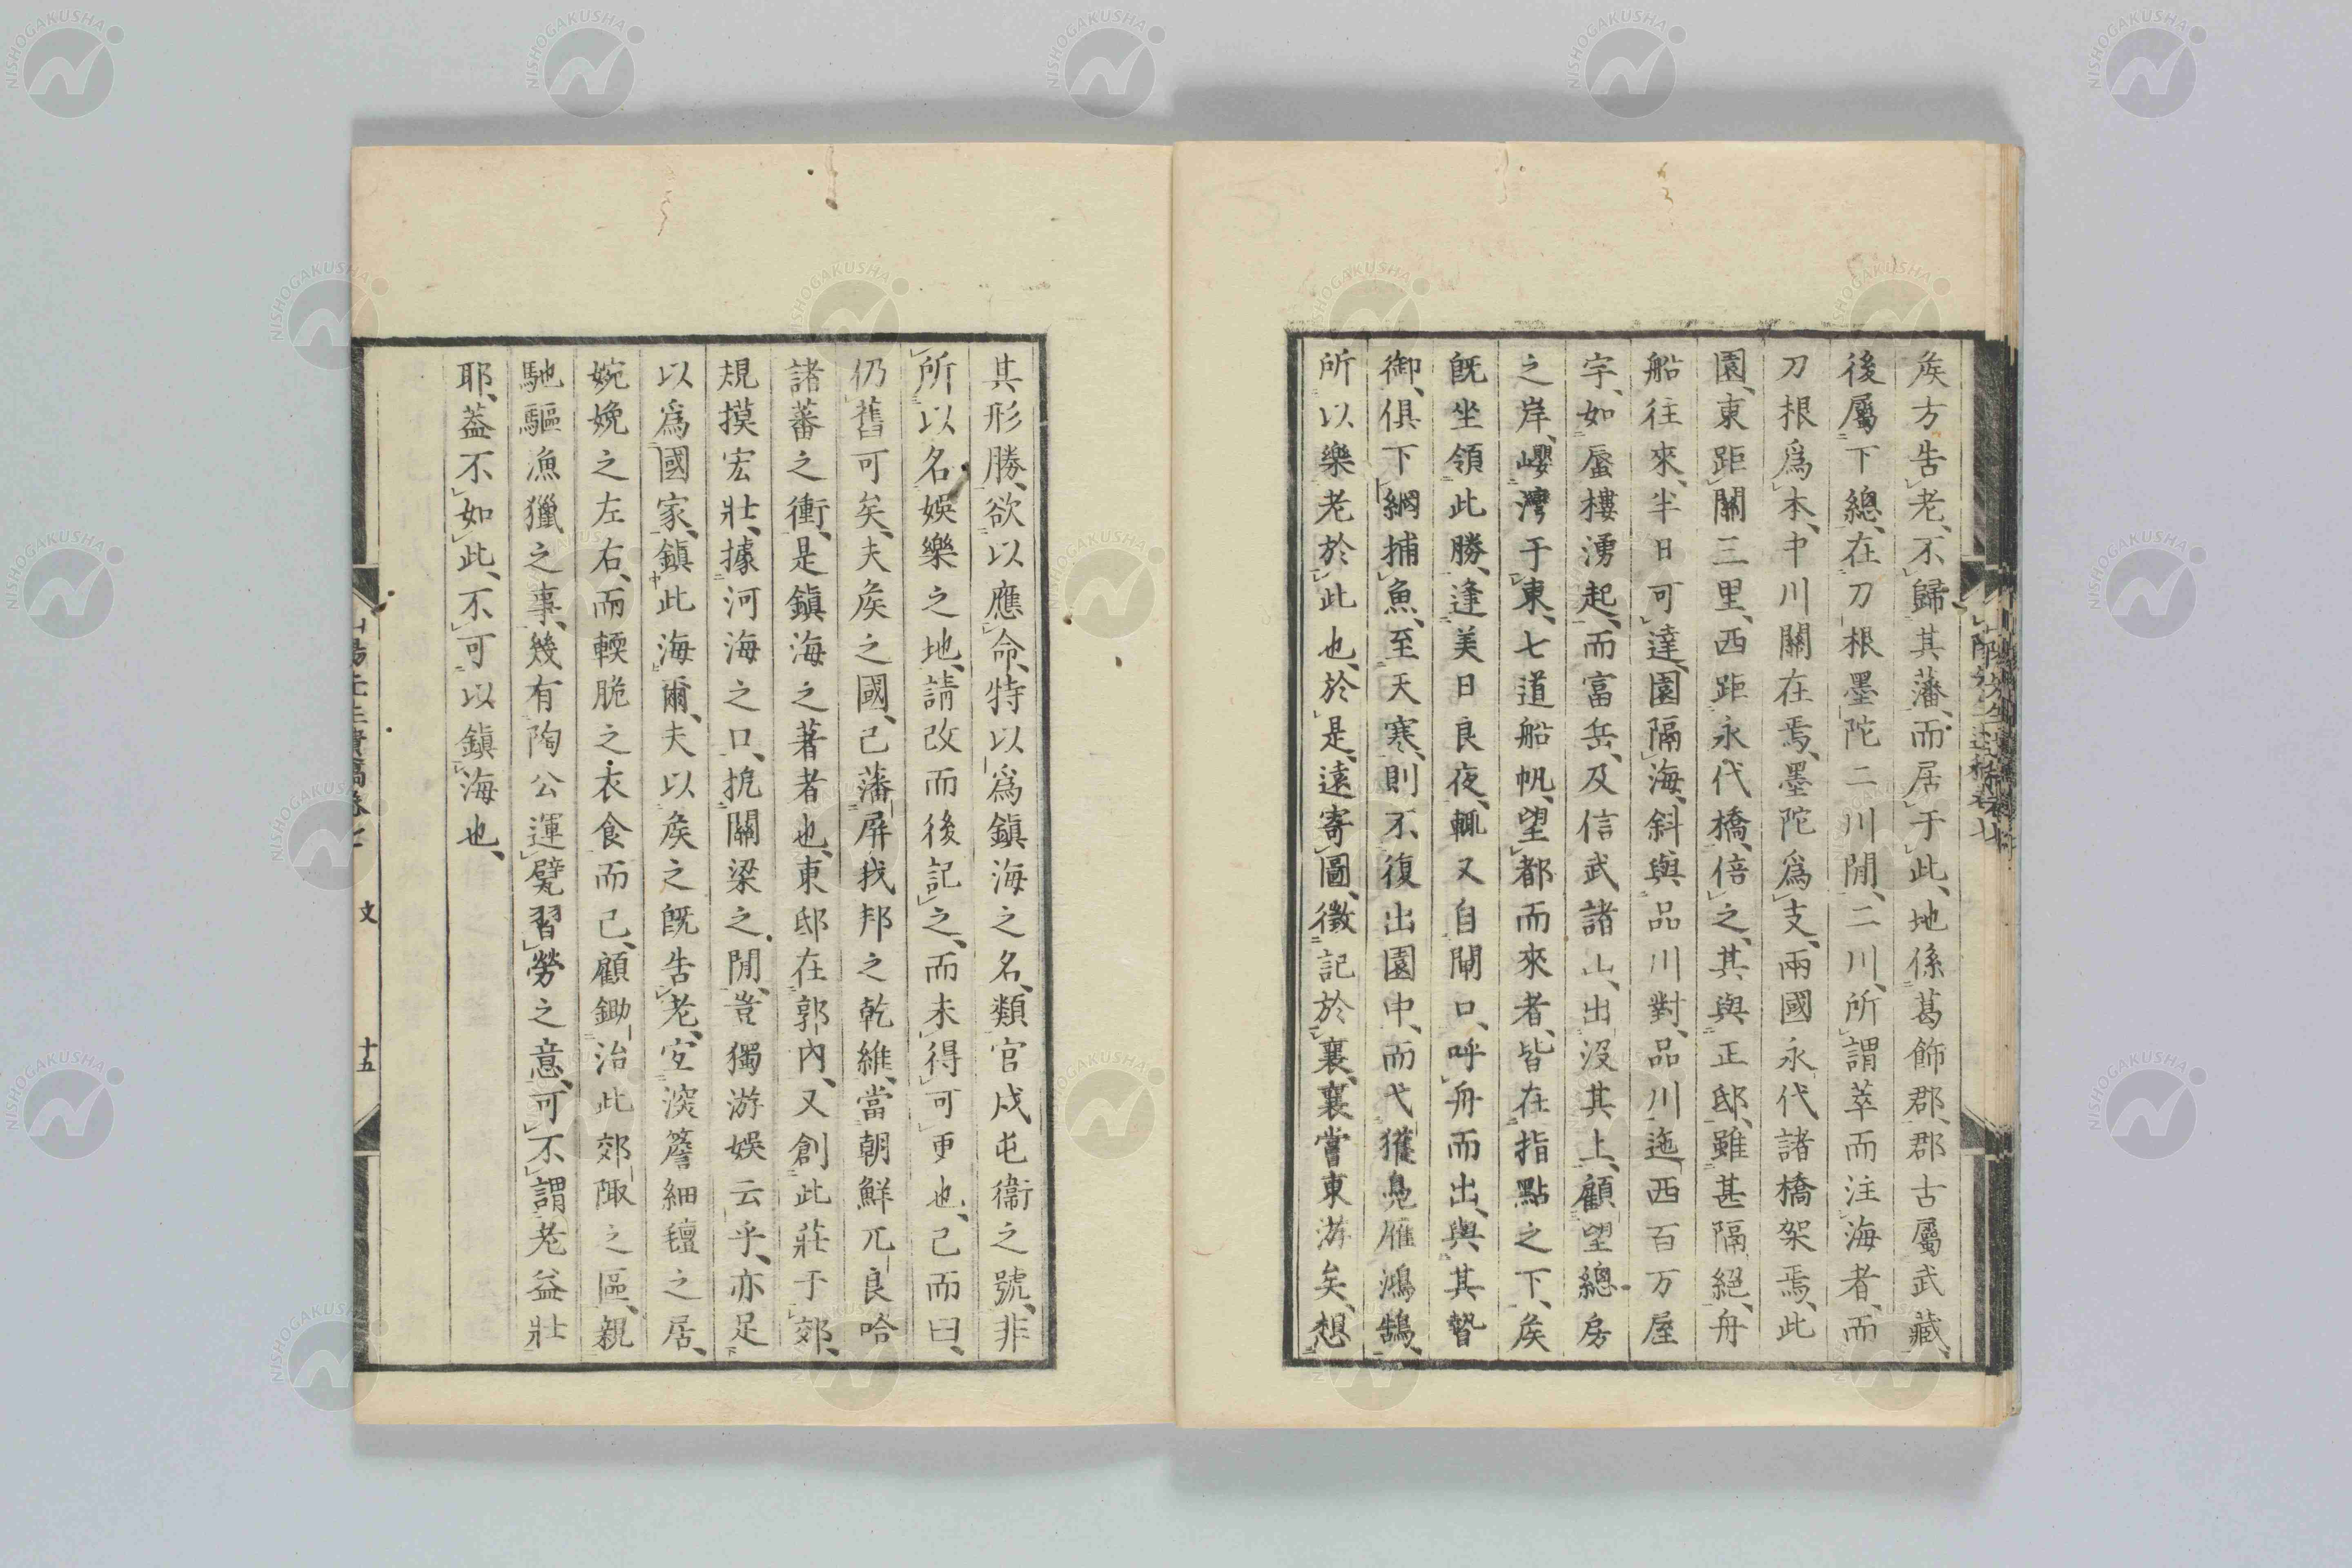 矦方告老、不歸其藩、而居于此、地係葛飾郡、郡古屬武藏、
後屬下總、在刀根墨陀二川閒、二川、所謂萃而注海者、而
刀根爲本、中川關在焉、墨陀爲支、兩國永代諸橋架焉、此
園、東距關三里、西距永代橋、倍之、其與正邸、雖甚隔絕、舟
船往來、半日可達、園隔海、斜與品川對、品川迤西百万屋
宇、如蜃樓湧起、而富岳、及信武諸山、出沒其上、顧望總房
之岸、巊灣于東、七道船帆、望都而來者、皆在指點之下、矦
旣坐領此勝、逢美日良夜、輒又自閘口、呼舟而出、與其贄
御、俱下網捕魚、至天寒、則不復出園中、而弋獲鳧雁鴻鵠、
所以樂老於此也、於是、遠寄圖、徵記於襄、襄嘗東游矣、想
其形勝、欲以應命、特以爲鎭海之名、類官戍屯衞之號、非
所以名娛樂之地、請改而後記之、而未得可更也、已而曰、
仍舊可矣、夫矦之國、已藩屏我邦之乾維、當朝鮮兀良哈
諸蕃之衝、是鎭海之著者也、東邸在郭內、又創此莊于郊、
規摸宏壯、據河海之口、扼關梁之閒、豈獨游娛云乎、亦足
以爲國家、鎭此海爾、夫以矦之旣告老、宜深簷細氊之居、
婉娩之左右、而輭脆之衣食而已、顧鋤治此郊陬之區、親
馳驅漁獵之事、幾有陶公運甓習勞之意、可不謂老益壯
耶、葢不如此、不可以鎭海也、
文
十五
NISHOGAKUSHA